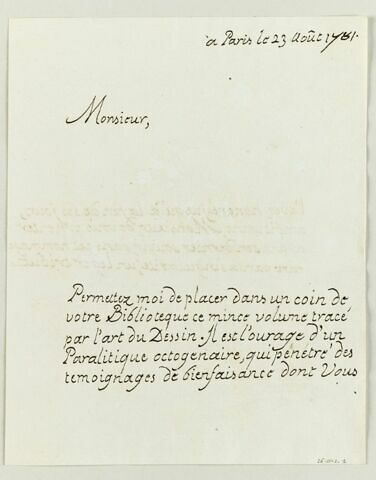 a Paris le 23 Août 1781.
Monsieur,
Permettez moi de placer dans un coin de
votre Biblioteque ce mince volume tracé
par l'art du Dessin. Il est l'ourage d'un
Paralitique octogenaire, qui pénétré des
temoignages de bienfaisance dont Vous